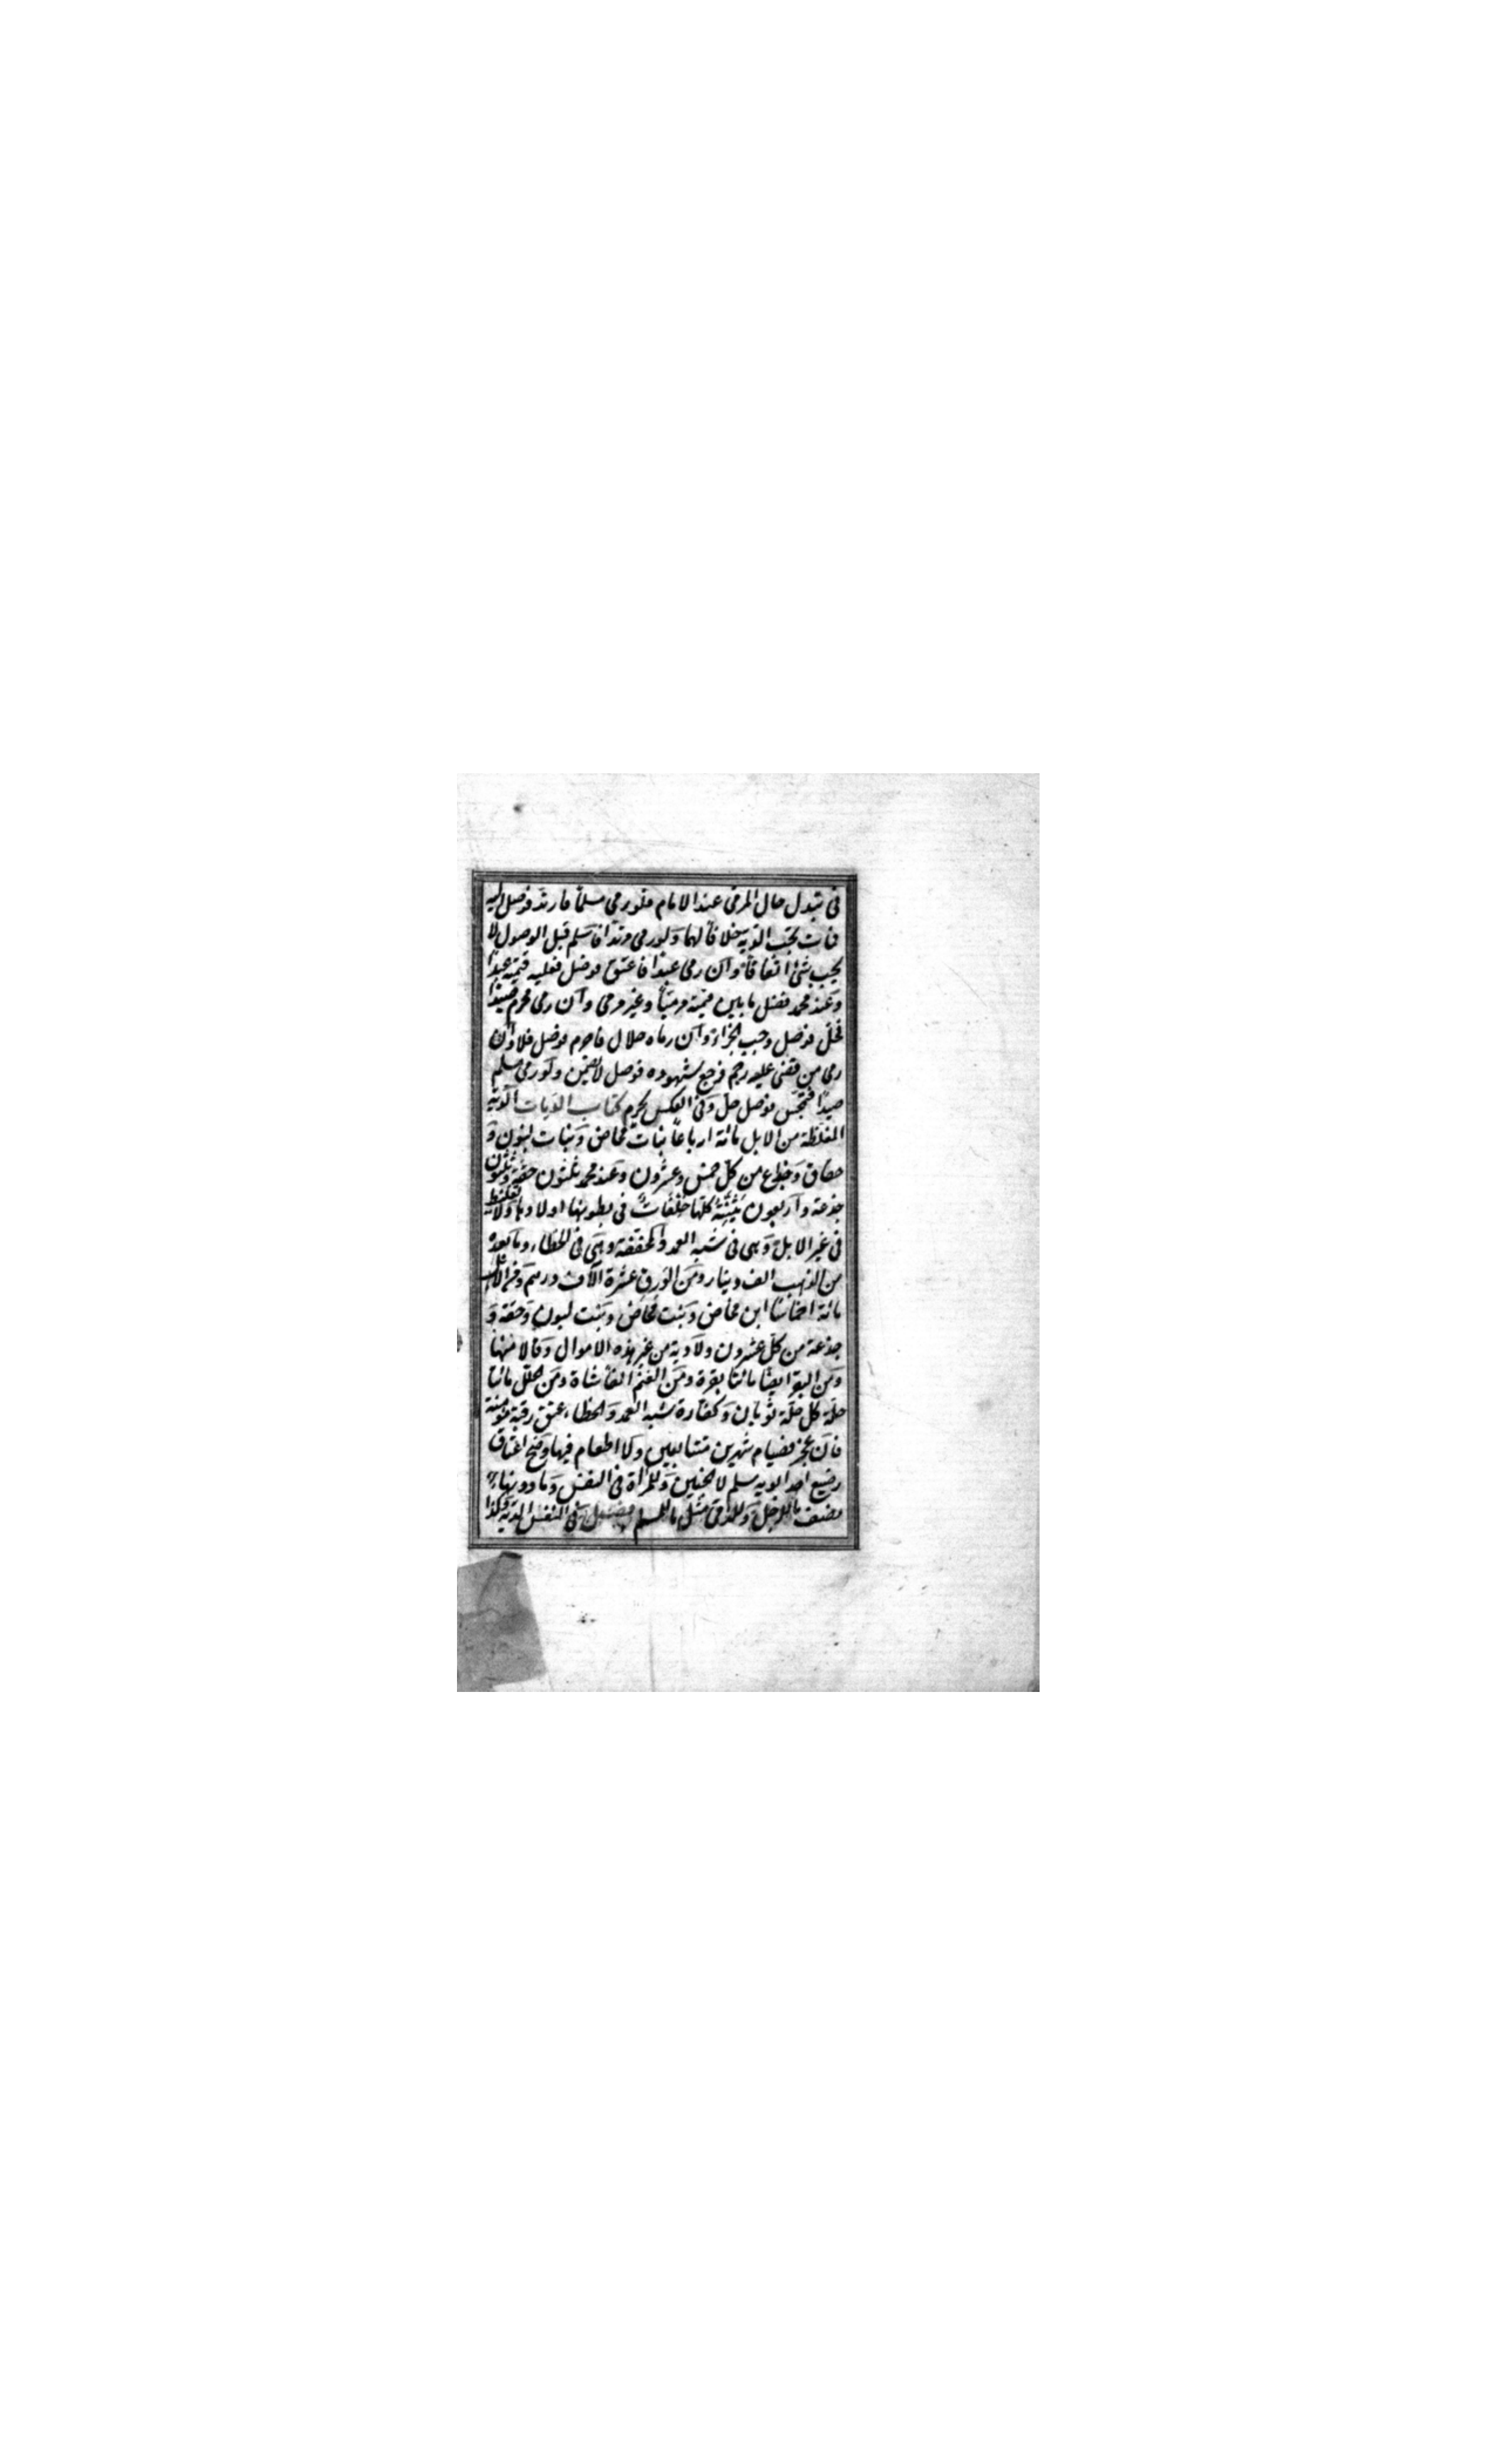 فى تبدل حال المرمى عند الامام فلو رمى مسلما فارتد فوصل اليه
فمات تجب الدية خلافا لهما ولو رمى مرتدا فاسلم قبل الوصول لا
يجب شئ اتفاقا وان رمى عبدا فاعتق فوصل فعليه قيمته عبدا
وعند محمد فضل ما بين قيمته مرميا وغير مرمى وان رمى محرم صيدا
فحل فوصل وجب الجزاء وان رماه حلال فاحرم فوصل فلا وان
رمى من قضى عليه رجم فرجع شهوده فوصل لا يضمن ولو رمى مسلم
صيدا فتمجس فوصل حل وفى العكس يحرم كتاب الديات الدية
المغلظة من الابل مائة ارباعا بنات مخاض وبنات لبون و
حقاق وجذاع من كل خمس وعشرون وعند محمد ثلثون حقة وثلثون
جذعة واربعون ثنية كلها خلفات فى بطونها اولادها ولا تغليظ
فى غير الابل وهى فى شبه العمد والمخففة وهى فى الخطاء وما بعده
من الذهب الف دينار ومن الورق عشرة الآف درهم ومن الابل
مائة اخماسا ابن مخاض وبنت مخاض وبنت لبون وحقة و
جذعة من كل عشرون ولا دية من غير هذه الاموال وقالا منها
ومن البقر ايضا مائتا بقرة ومن الغنم الفا شاة ومن الحلل مائتا
حلة كل حلة ثوبان وكفارة شبه العمد والخطاء عتق رقبة مؤمنة
فان عجز فصيام شهرين متتابعين ولا اطعام فيها وصح اعتاق
رضيع احد ابويه مسلم لا الجنين وللمرأة فى النفس وما دونها
نصف ما للرجل وللذمى مثل ما للمسلم فصل فى النفس الدية وكذا